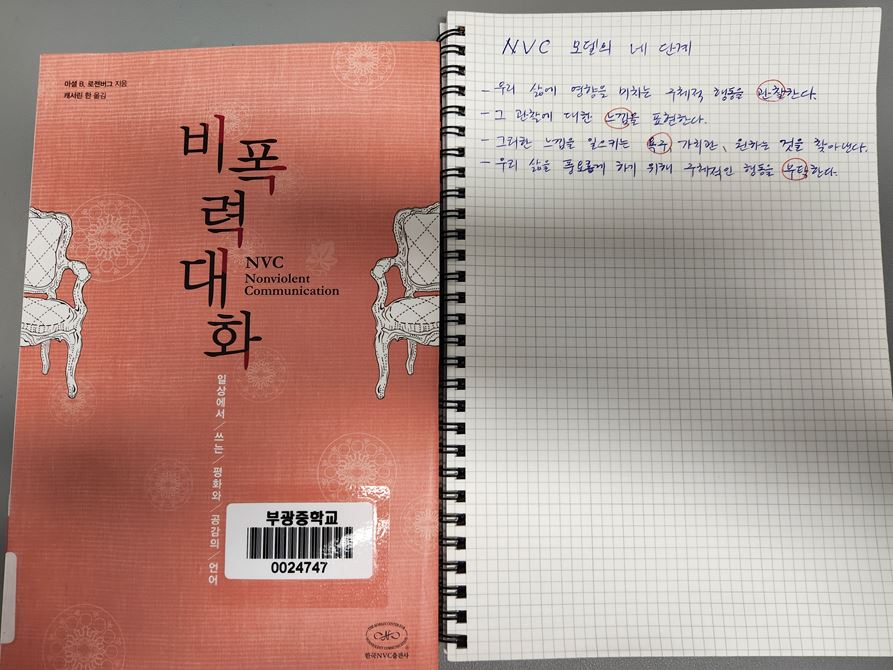 마셜 B. 로젠버그 지음
캐서린 한 옮김
비폭력대화
NVC
Nonviolent
Communication
일상에서/쓰는/평화와/공감의/언어
부광중학교
0024747
THE KOREAN CENTER FOR
NONVIOLENT COMMUNICATION
한국NVC출판사
NVC 모델의 네 단계
- 우리 삶에 영향을 미치는 구체적 행동을 관찰한다.
- 그 관찰에 대한 느낌을 표현한다.
- 그러한 느낌을 일으키는 욕구, 가치관, 원하는 것을 찾아낸다.
- 우리 삶을 풍요롭게 하기 위해 구체적인 행동을 부탁한다.